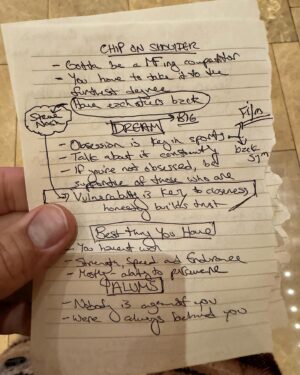 CHIP ON SHOULDER
- Gotta be a MFing competitor
- You have to take it to the
furthest degree
Have each others back
Steve Nash
DREAM → BIG
Film
- Obsession is key in sports
- Talk about it constantly
back
gym
- If you're not obsessed, be
supportive of those who are
- Vulnerability is key to closeness
honesty builds trust
Best Thing You Have
- You honest with
- Strength, Speed and Endurance
- ability to persevere
ALUMS
- Nobody is against you
- We're always behind you